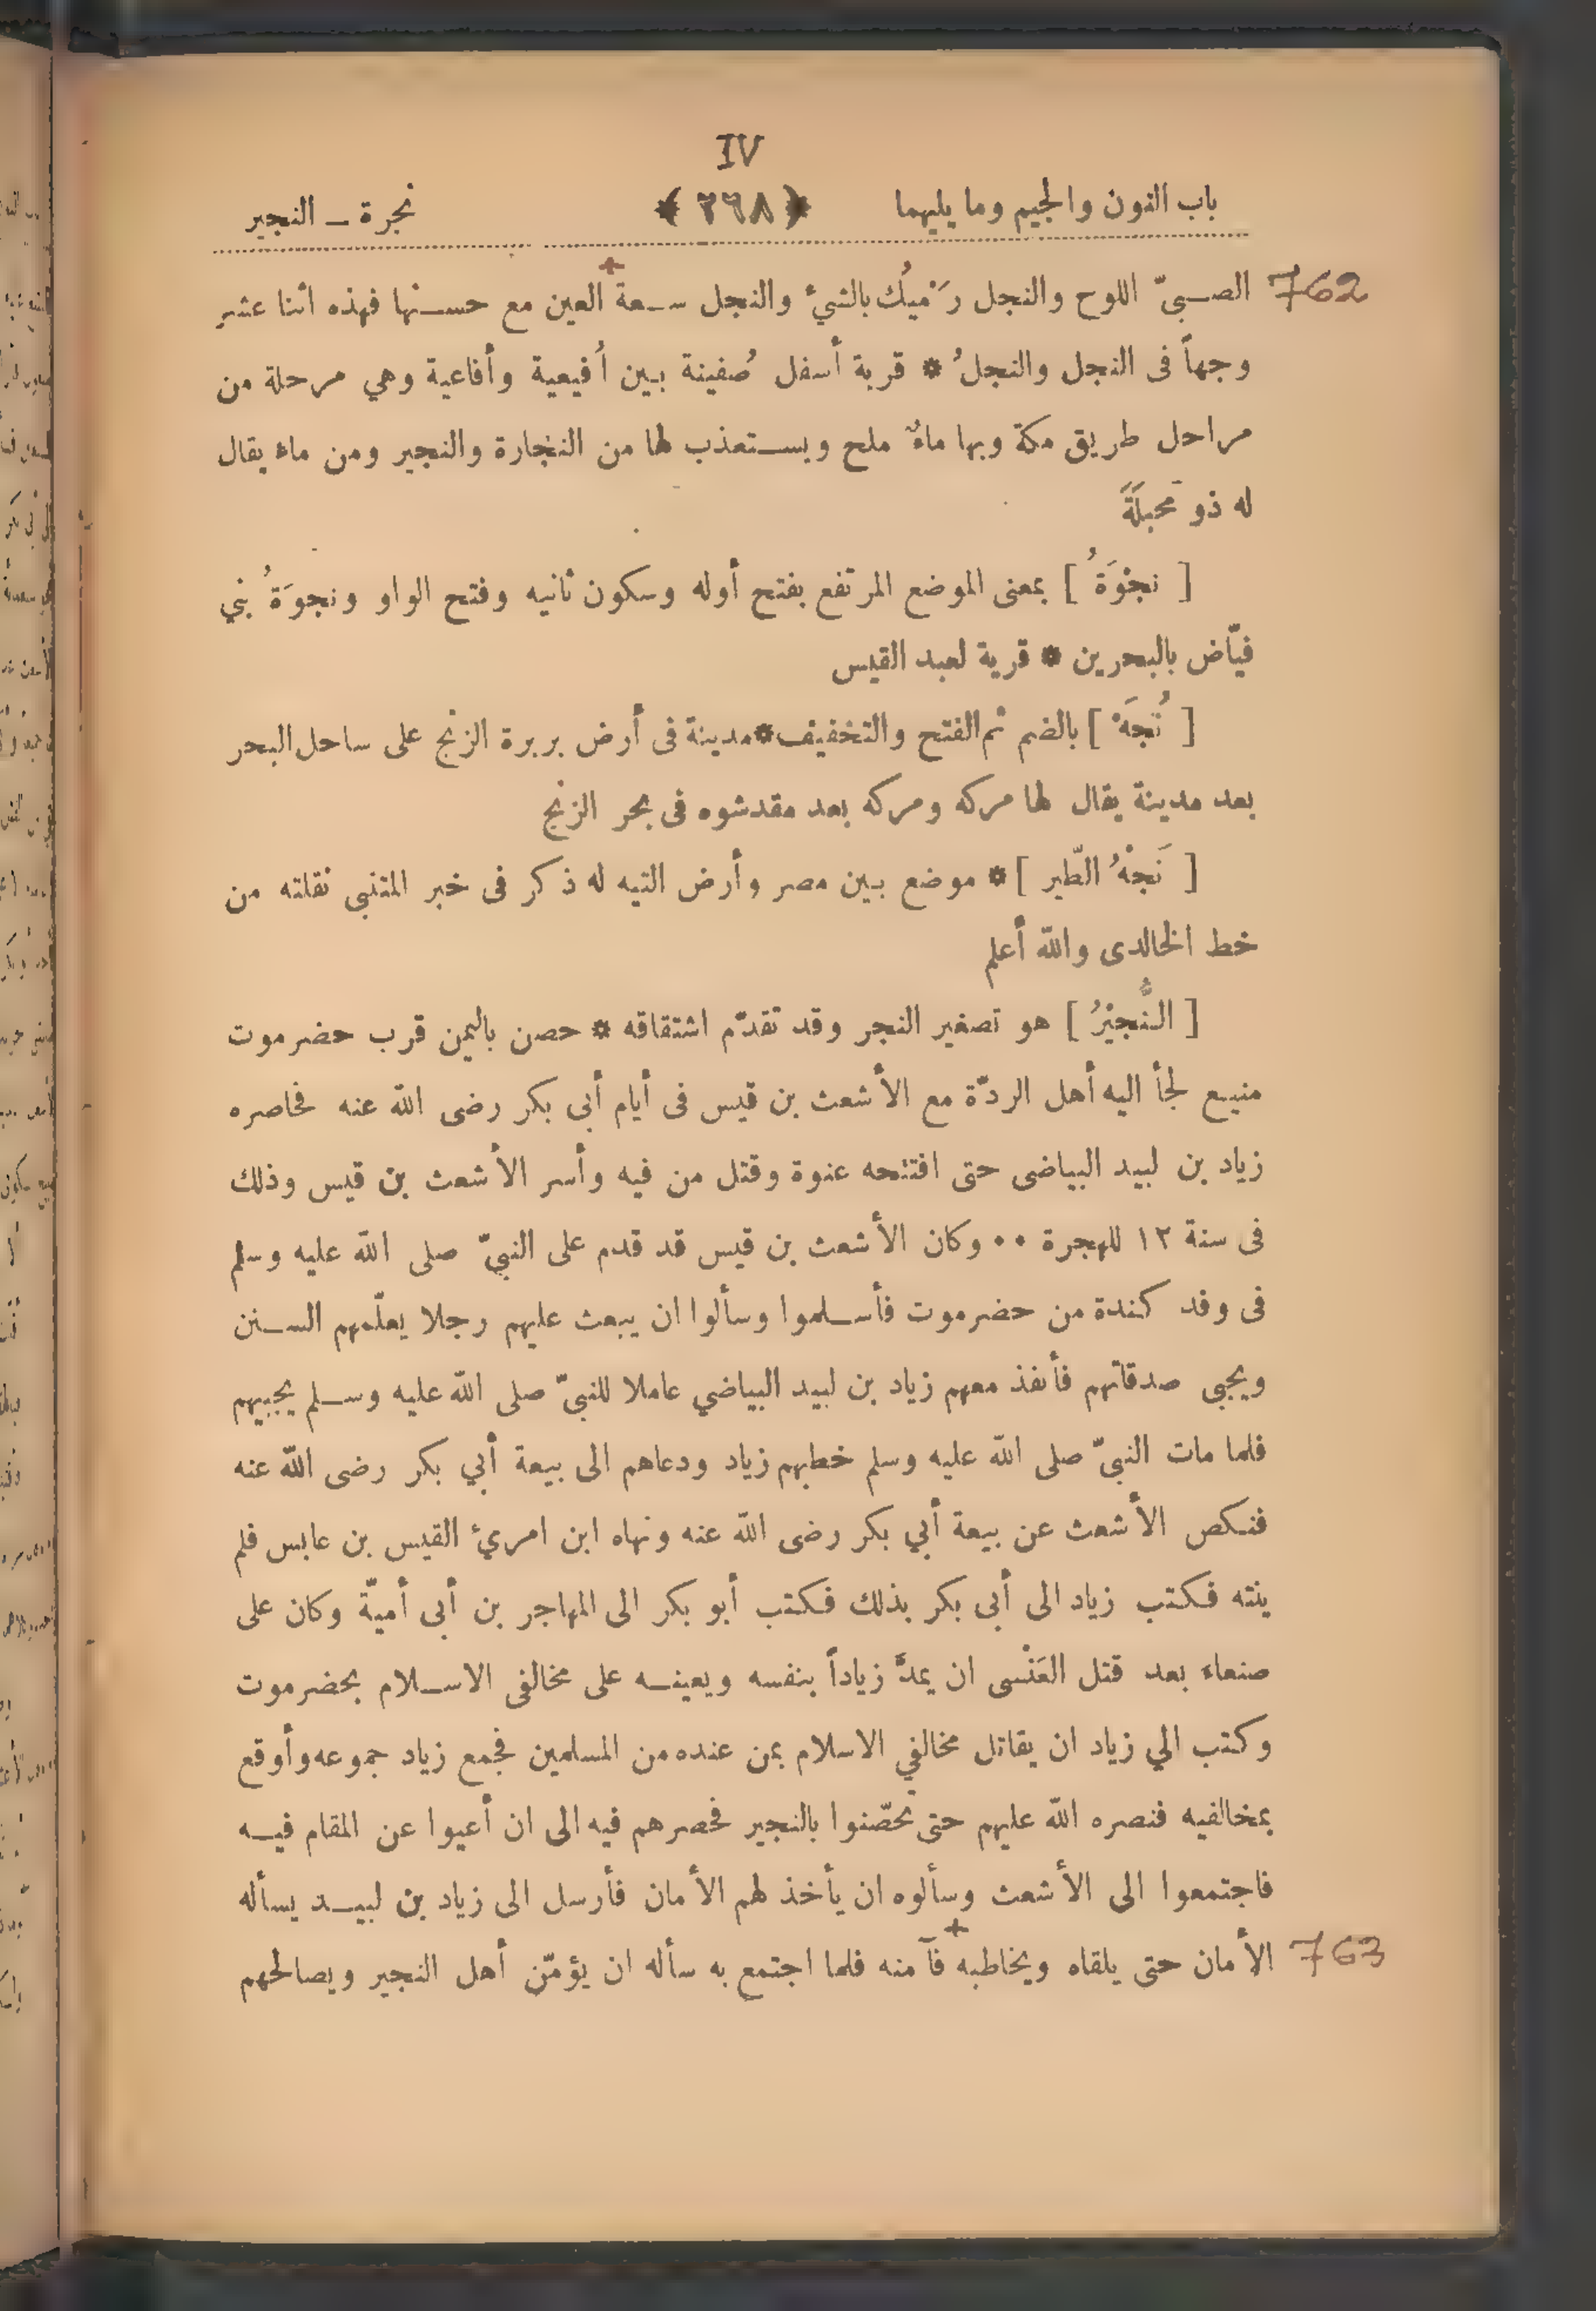 IV
باب النون والجيم وما يليهما ﴿ ٢٦٨ ﴾ نجرة ــ النجير
762 الصبيّ اللوح والنجل رَمْيُك بالشيء والنجل سعة العين مع حسنها فهذه اثنا عشر
وجهاً فى النجل والنجلُ * قرية أسفل صُفينة بين أُفيعية وأفاعية وهي مرحلة من
مراحل طريق مكة وبها ماءٌ ملح ويستعذب لها من النجارة والنجير ومن ماء يقال
له ذو محبلَةَ
[ نجْوَةُ ] بمعنى الموضع المرتفع بفتح أوله وسكون ثانيه وفتح الواو ونجوَةُ بني
فيّاض بالبحرين * قرية لعبد القيس
[ نُجَهْ ] بالضم ثم الفتح والتخفيف * مدينة فى أرض بربرة الزنج على ساحل البحر
بعد مدينة يقال لها مركه ومركه بعد مقدشوه فى بحر الزنج
[ نَجْهُ الطّير ] * موضع بين مصر وأرض التيه له ذكر فى خبر المتنبى نقلته من
خط الخالدى والله أعلم
[ النُّجيْرُ ] هو تصغير النجر وقد تقدّم اشتقاقه * حصن باليمن قرب حضرموت
منيع لجأ اليه أهل الردّة مع الأشعث بن قيس فى أيام أبى بكر رضى الله عنه فحاصره
زياد بن لبيد البياضى حتى افتتحه عنوة وقتل من فيه وأسر الأشعث بن قيس وذلك
فى سنة ١٢ للهجرة ٠٠ وكان الأشعث بن قيس قد قدم على النبيّ صلى الله عليه وسلم
فى وفد كندة من حضرموت فأسلموا وسألوا ان يبعث عليهم رجلا يعلّمهم السنن
ويجبى صدقاتهم فأنفذ معهم زياد بن لبيد البياضي عاملا للنبيّ صلى الله عليه وسلم يجبيهم
فلما مات النبيّ صلى الله عليه وسلم خطبهم زياد ودعاهم الى بيعة أبي بكر رضى الله عنه
فنكص الأشعث عن بيعة أبي بكر رضى الله عنه ونهاه ابن امريء القيس بن عابس فلم
ينته فكتب زياد الى أبى بكر بذلك فكتب أبو بكر الى المهاجر بن أبى أميّة وكان على
صنعاء بعد قتل العَنْسى ان يمدَّ زياداً بنفسه ويعينه على مخالفى الاسلام بحضرموت
وكتب الي زياد ان يقاتل مخالفي الاسلام بمن عنده من المسلمين فجمع زياد جموعه وأوقع
بمخالفيه فنصره الله عليهم حتى تحصّنوا بالنجير فحصرهم فيه الى ان أعيوا عن المقام فيه
فاجتمعوا الى الأشعث وسألوه ان يأخذ لهم الأمان فأرسل الى زياد بن لبيد يسأله
763 الأمان حتى يلقاه ويخاطبه فآمنه فلما اجتمع به سأله ان يؤمّن أهل النجير ويصالحهم